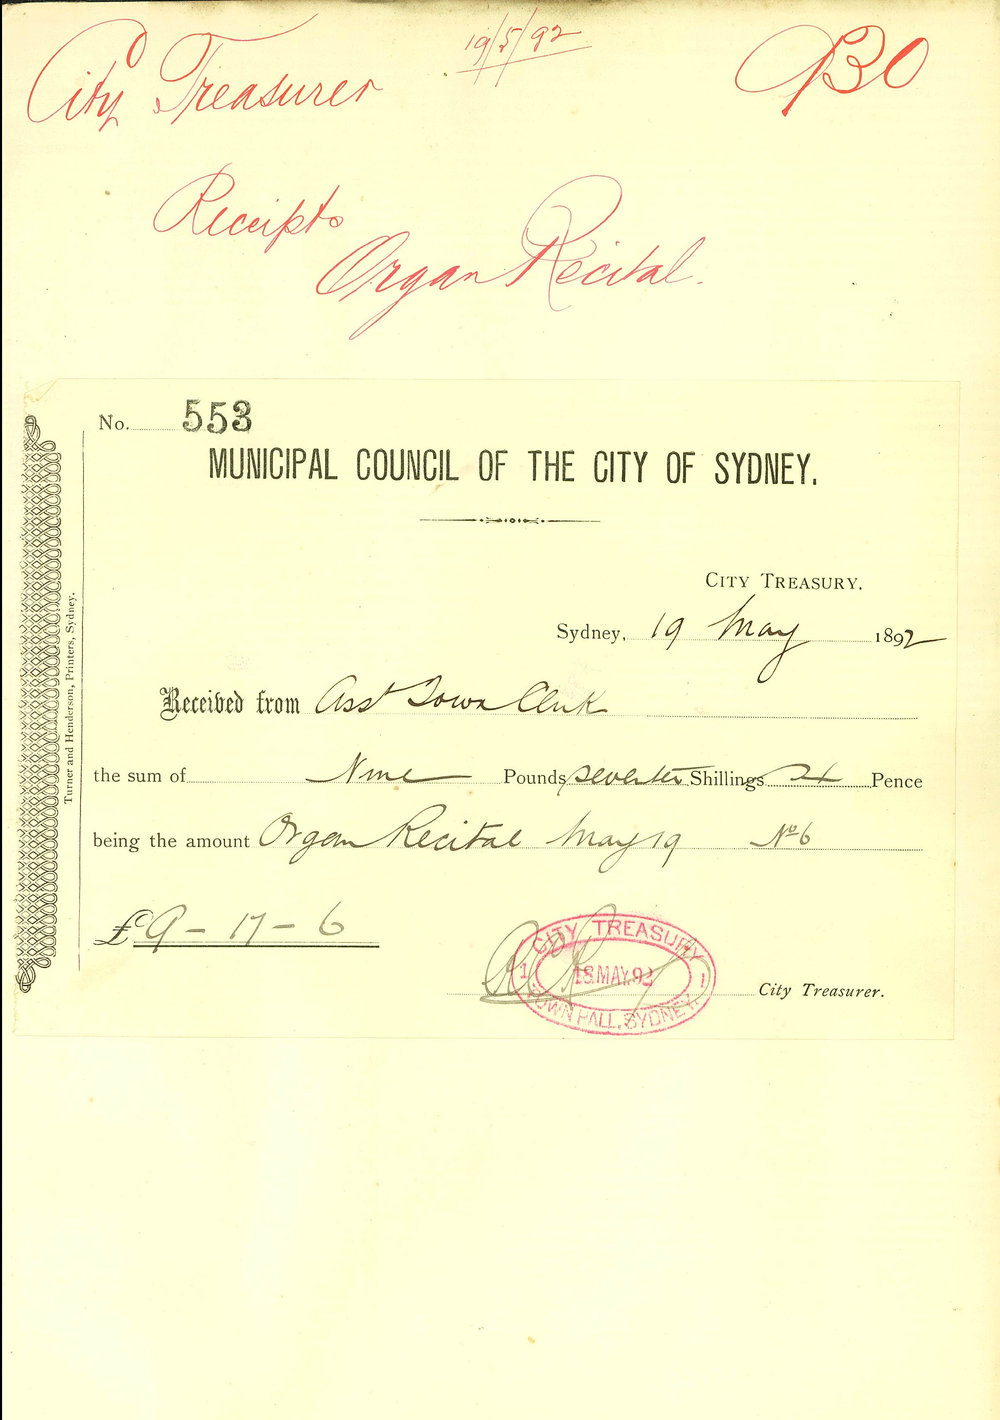 19/5/92
City Treasurer
930
Receipts
Organ Recital.
No. 553
MUNICIPAL COUNCIL OF THE CITY OF SYDNEY.
CITY TREASURY.
Sydney, 19 May 1892
Received from Asst Town Clerk
the sum of Nine Pounds seventeen Shillings Pence
being the amount Organ Recital May 19 No 6
£ 9 - 17 - 6
CITY TREASURY
1 18.MAY.92 1
TOWN HALL, SYDNEY.
City Treasurer.
Turner and Henderson, Printers, Sydney.